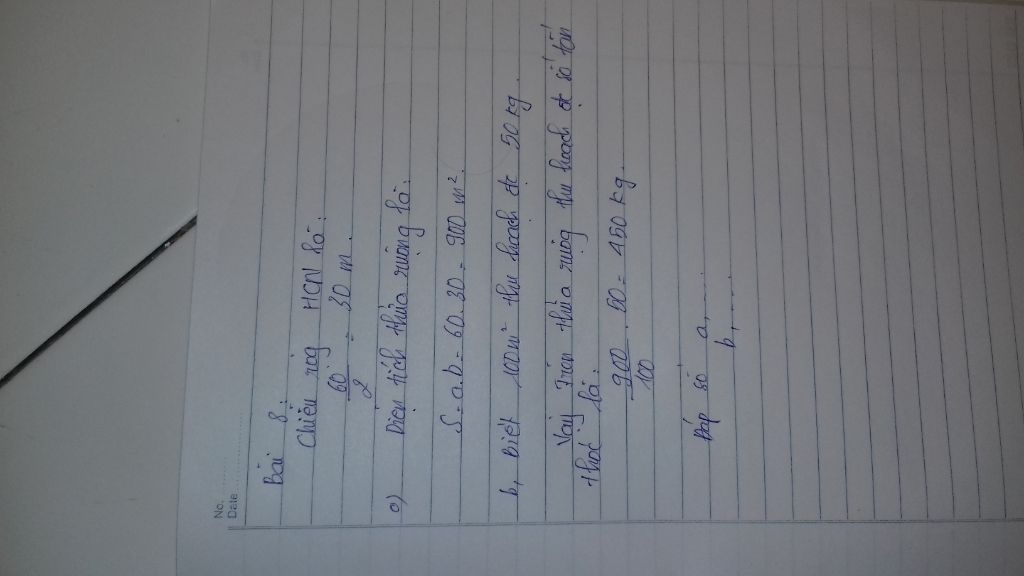 No. ..............
Date ..............
Bài 8:
Chiều rộg HCN là:
60/2 = 30 m.
a) Diện tích thửa ruộng là:
S = a.b = 60.30 = 900 m².
b, Biết 100m² thu hoạch đc 50 kg.
Vậy trên thửa ruộg thu hoạch đc số tấn
thóc là:
900/100 . 50 = 450 kg.
Đáp số a, .....
b, .....